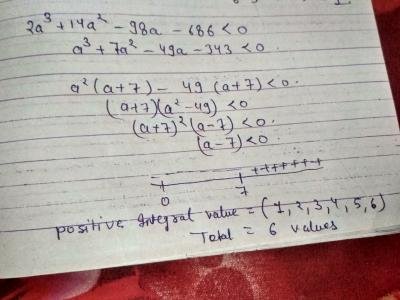 2a³ + 14a² - 98a - 686 < 0
a³ + 7a² - 49a - 343 < 0.
a² (a+7) - 49 (a+7) < 0.
(a+7)(a² - 49) < 0
(a+7)² (a-7) < 0.
(a-7) < 0.
+ + + + + + +
0 7
positive Integral value = (1, 2, 3, 4, 5, 6)
Total = 6 values